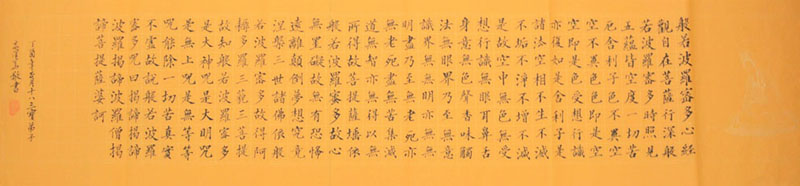 般若波羅蜜多心經
觀自在菩薩行深般
若波羅蜜多時照見
五蘊皆空度一切苦
厄舍利子色不異空
空不異色色即是空
空即是色受想行識
亦復如是舍利子是
諸法空相不生不滅
不垢不淨不增不減
是故空中無色無受
想行識無眼耳鼻舌
身意無色聲香味觸
法無眼界乃至無意
識界無無明亦無無
明盡乃至無老死亦
無老死盡無苦集滅
道無智亦無得以無
所得故菩提薩埵依
般若波羅蜜多故心
無罣礙故無有恐怖
遠離顛倒夢想究竟
涅槃三世諸佛依般
若波羅蜜多故得阿
耨多羅三藐三菩提
故知般若波羅蜜多
是大神咒是大明咒
是無上咒是無等等
咒能除一切苦真實
不虛故說般若波羅
蜜多咒曰揭諦揭諦
波羅揭諦波羅僧揭
諦菩提薩婆訶
丁酉年月十八弟子
敬書